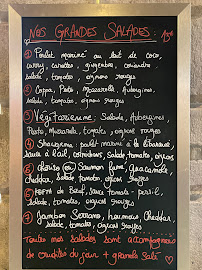 NOS GRANDES SALADES : 15€
① Poulet mariné au lait de coco,
curry, carottes, gingembre, coriandre
salade, tomates, oignons rouges
② Coppa, Pesto, Mozzarella, Aubergines,
salade, tomates, oignons rouges
③ Végétarienne : Salade, Aubergines
Pesto, Mozzarella, tomates, oignons rouges
④ poulet mariné à la libanaise,
sauce à l'ail, salade, tomates, oignons
⑤ ou Saumon fumé, guacamole
cheddar, salade, tomates, oignons rouges
⑥ de Boeuf, sauce tomate - persil,
salade, tomates, oignons rouges
⑦ Jambon Serrano, houmous, cheddar,
salade, tomates, oignons rouges
Toutes nos salades sont accompagnées
de crudités du jour + granola salé ♡